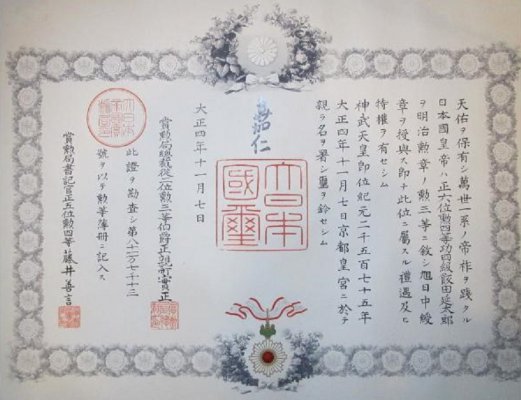 天佑ヲ保有シ萬世一系ノ帝祚ヲ踐タル
日本國皇帝ハ正六位勲四等功四級飯田延太郎
ヲ明治勲章ノ勲三等ニ敍シ旭日中綬
章ヲ授與ス即チ此位ニ屬スル禮遇及ヒ
特權ヲ有セシム
神武天皇即位紀元二千五百七十五年
大正四年十一月七日京都皇宮ニ於テ
親ラ名ヲ署シ璽ヲ鈐セシム
嘉仁
大日本
國璽
大正四年十一月七日
賞勲局總裁從二位勲二等伯爵正親町實正
此證ヲ勘査シ第
號ヲ以テ勲章簿冊ニ記入ス
賞勲局書記官正五位勲四等藤井善言